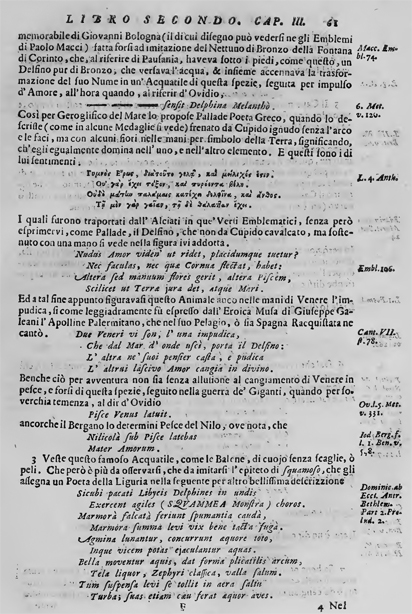 LIBRO SECONDO. CAP. III. 61
memorabile di Giovanni Bologna (il di cui disegno può vedersi ne gli Emblemi
di Paolo Macci) fatta forsi ad imitazione del Nettuno di Bronzo della Fontana
Macc. Em-
bl. 74.
di Corinto, che, al riferire di Pausania, haveva sotto i piedi, come questo, un
Delfino pur di Bronzo, che versava l'acqua, & insieme accennava la trasfor-
mazione del suo Nume in un' Acquatile di questa spezie, seguita per impulso
d' Amore, all' hora quando, ai riferir d' Ovidio,
sensit Delphina Melantho.
6. Met.
v. 120.
Così per Geroglifico del Mare lo propose Pallade Poeta Greco, quando lo de-
scrisse (come in alcune Medaglie si vede) frenato da Cupido ignudo senza l'arco
e le faci, ma con alcuni fiori nelle mani per simbolo della Terra, significando,
ch'egli egualmente domina nell' uno, e nell'altro elemento. E questi sono i di
lui sentimenti.
L. 4. Anth.
I quali furono traportati dall' Alciati in que' Versi Emblematici, senza però
esprimervi, come Pallade, il Delfino, che non da Cupido cavalcato, ma soste-
nuto con una mano si vede nella figura ivi addotta.
Nudus Amor viden' ut ridet, placidumque tuetur?
Nec faculas, nec quæ Cornua flectat, habet;
Embl. 106.
Altera sed manuum flores gerit, altera Piscem,
Scilicet ut Terra jura det, atque Mari.
Ed a tal fine appunto figuravasi questo Animale anco nelle mani di Venere l'im-
pudica, si come leggiadramente fù espresso dall' Eroica Musa di Giuseppe Ga-
leani l' Apolline Palermitano, che nel suo Pelagio, ò sia Spagna Racquistata ne
cantò.
Due Veneri vi son, l' una impudica,
Cant. VII.
st. 78.
Che dal Mar d' onde uscì, porta il Delfino:
L' altra ne' suoi pensier casta, e pudica
L' altrui lascivo Amor cangia in divino.
Benche ciò per avventura non sia senza allutione al cangiamento di Venere in
pesce, e forsi di questa spezie, seguito nella guerra de' Giganti, quando per so-
verchia temenza, al dir d' Ovidio
Pisce Venus latuit.
Ovl. 5. Met.
v. 331.
ancorche il Bergano lo determini Pesce del Nilo, ove nota, che
Nilicolâ sub Pisce latebas
Mater Amorum.
3 Veste questo famoso Acquatile, come le Balene, di cuojo senza scaglie, ò
peli. Che però è più da osservarsi, che da imitarsi l'epiteto di squamoso, che gli
assegna un Poeta della Liguria nella seguente per altro bellissima descrizzione
Sicubi pacati Libycis Delphines in undis
Exercent agiles (SQUAMMEA Monstra) choros.
Marmorâ falcatâ feriunt spumantia caudâ,
Marmora summa levi vix bene tacta fugâ.
Agmina lunantur, concurrunt æquore toto,
Inque vicem potas ejaculantur aquas.
Bella moventur aquis, dat forma plicatilis arcum;
Tela liquor, Zephyri classica, valla salum.
Tum suspensa levi se tollit in aera saltu
Turba; suas etiam cæu ferat ager aquas.
F
4 Nel